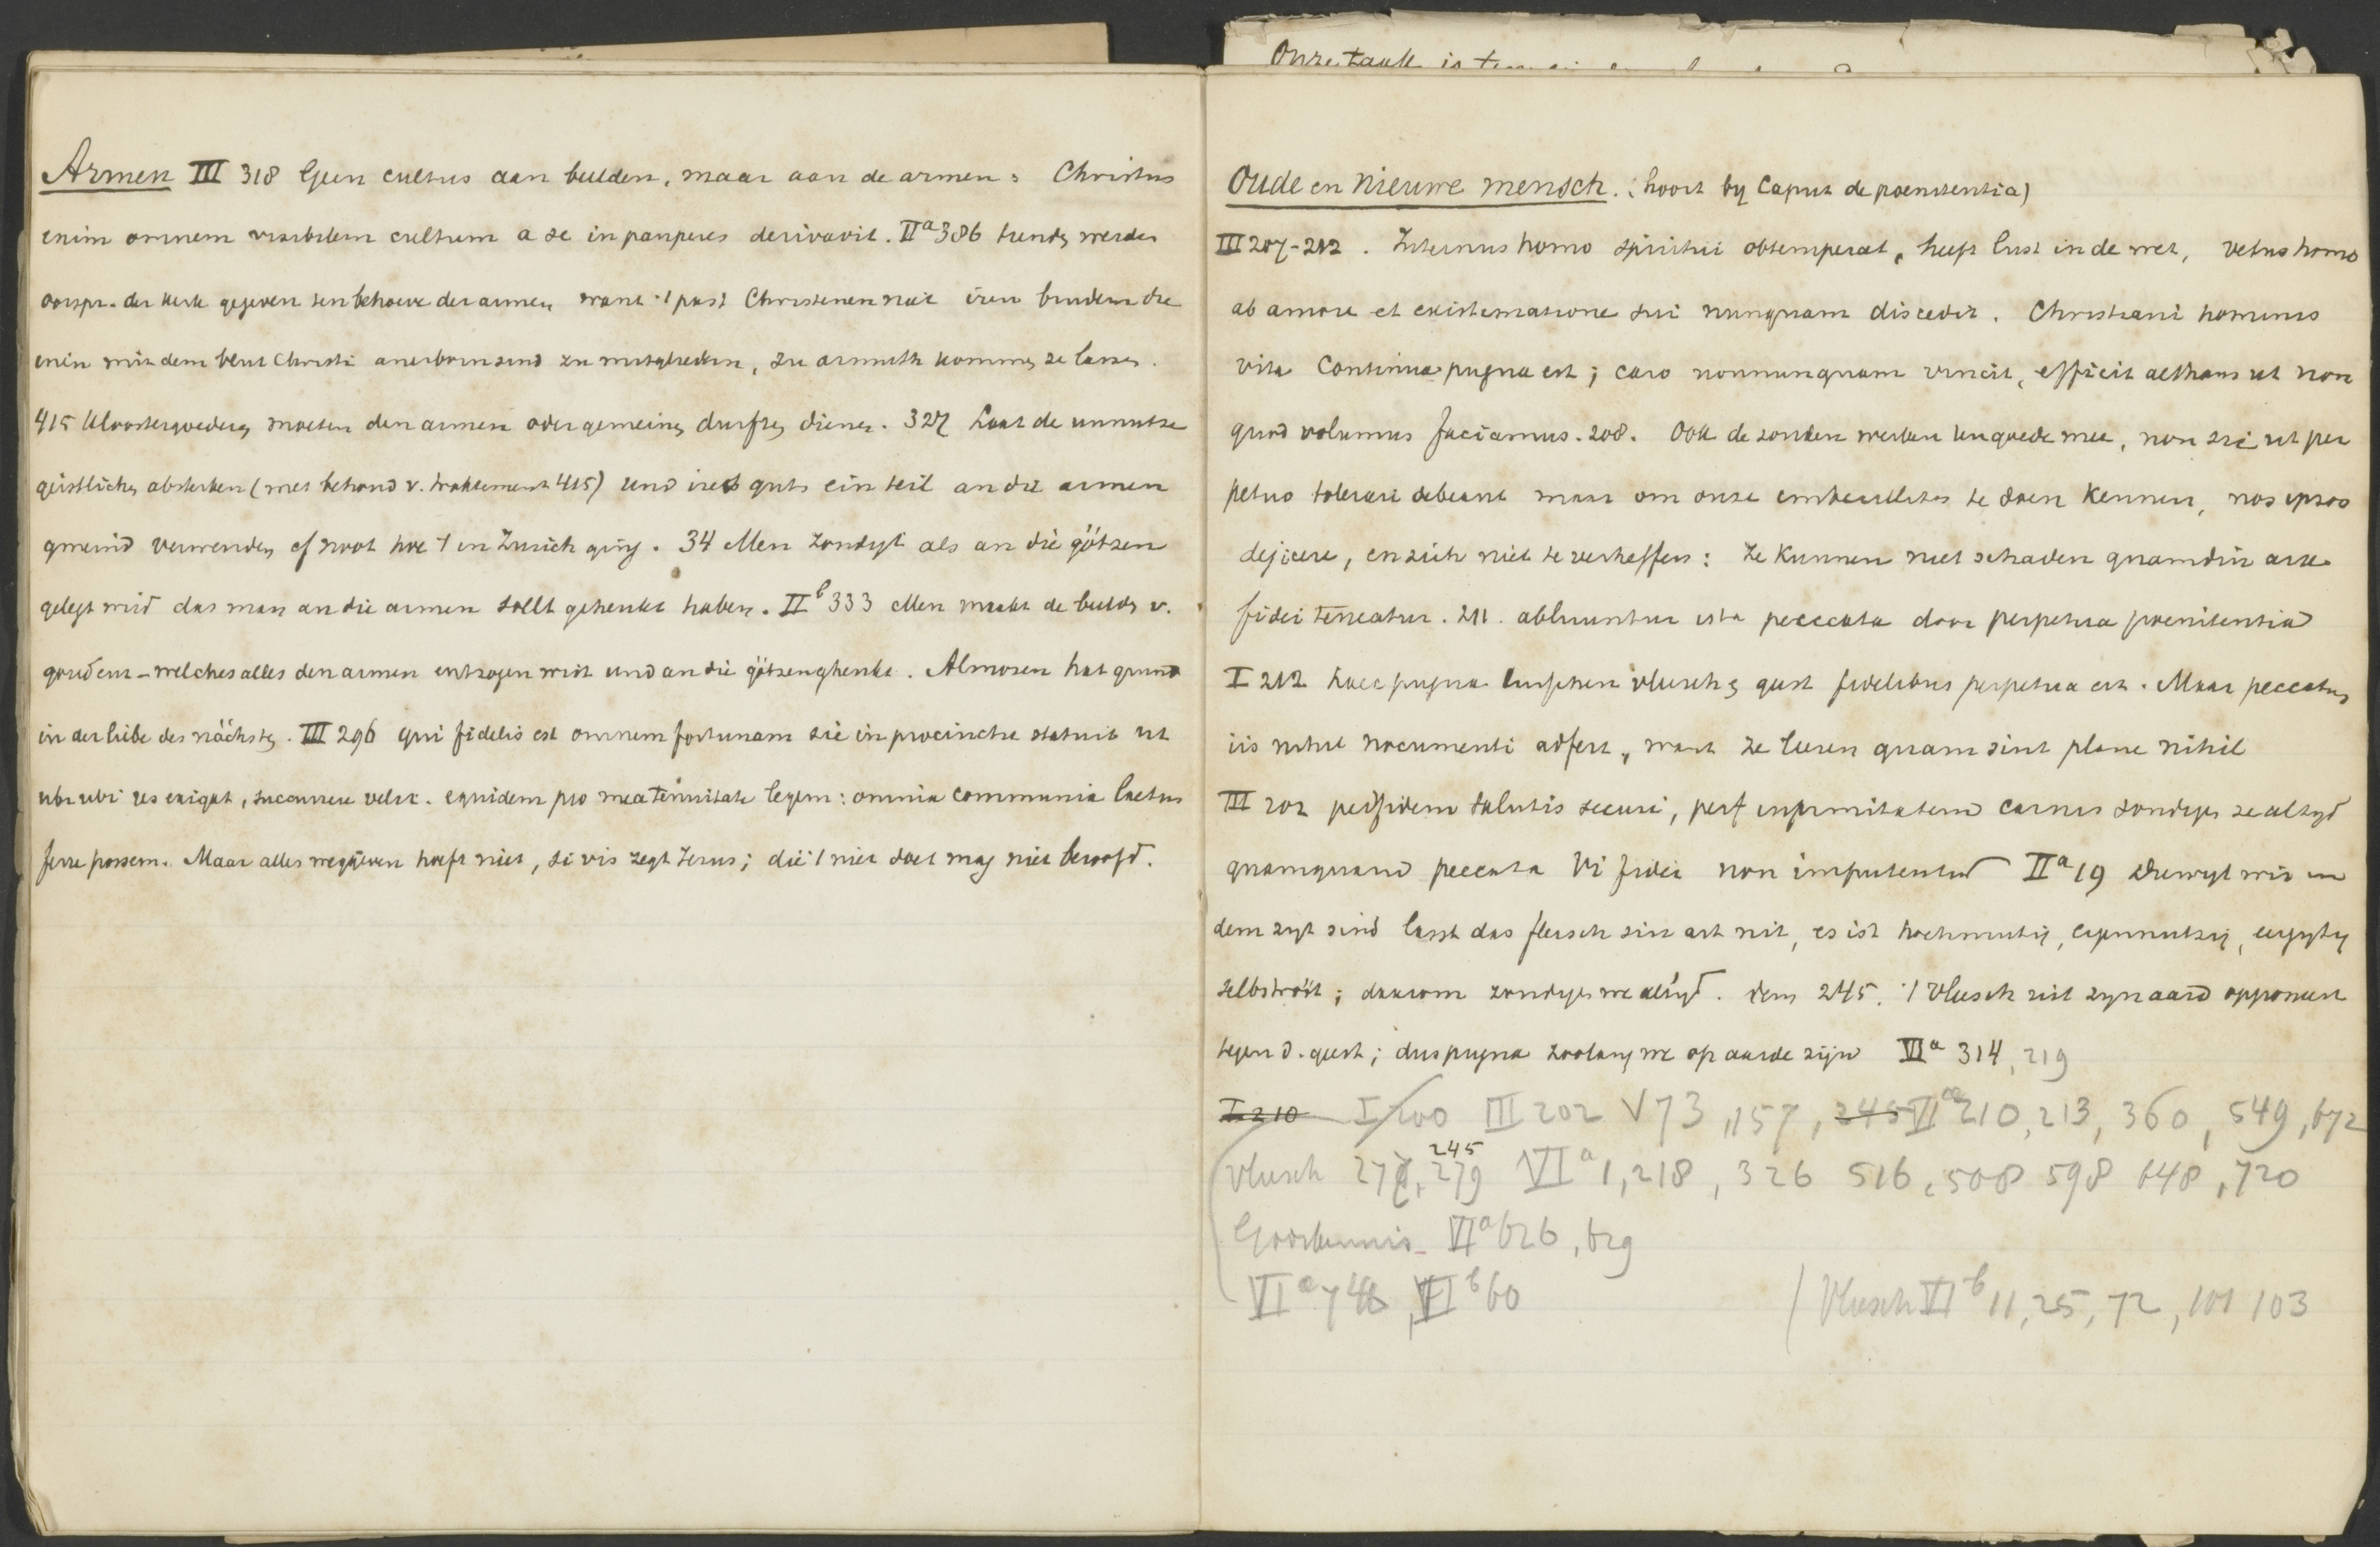 Onze taak is
Armen III 318 Geen cultus aan beelden, maar aan de armen: Christus
enim omnem visibilem cultum a se in pauperes derivavit. IIa 386 tienden werden
oorspr. der kerk gegeven ten behoeve der armen want 't past Christenen niet iren brudern die
inen mit dem blut Christi anerborn sind zu mitgliedern, zu armuth kommen ze lassen.
415 Kloostergoederen moeten den armen oder gemeinen durften dienen. 327 Laat de unnutze
geistlichen absterben (met behoud v. traktement 415) und ires guts ein teil an die armen
gmeind verwenden cf noot hoe 't in Zurich ging. 34 Men zondigt als an die götzen
gelegt wird das man an die armen sollt gehenkt haben. IIb 333 Men maakt de beelden v.
goud enz - welches alles den armen entzogen wirt und an die götzen ghenkt. Almosen hat grund
in der liebe des nächsten. III 296 qui fidelis est omnem fortunam sic in procinctu statuit ut
ubi ubi res exigat, succurrere velit. equidem pro mea tenuitate legem: omnia communia laetus
ferre possem. Maar alles weggeven hoeft niet, si vis zegt Jezus; die 't niet doet mag niet beroofd.
Oude en Nieuwe mensch. (hoort by Caput de poenitentia)
III 207-212. Internus homo spiritui obtemperat, heeft lust in de wet, vetus homo
ab amore et existimatione sui nunquam discedit. Christiani hominis
vita continua pugna est; caro nonnunquam vincit, efficit aethans ut non
quod volumus faciamus. 208. Ook de zonden werken ten goede mee, non sic ut per
petuo tolerari debeant maar om onze imbecillitas te doen kennen, nos ipsos
dejicere, en zich niet te verheffen: ze kunnen niet schaden quamdiu arx
fidei teneatur. 211. abluuntur ista peccata door perpetua poenitentia
I 212 haec pugna tusschen vleesch & geest fidelibus perpetua est. Maar peccatum
iis nihil nocumenti adfert, want ze leeren quam sint plane nihil
III 202 per fidem salutis securi, per infirmitatem carnis zondigen ze altyd
quamquam peccata vi fidei non imputentur IIa 19 Diewyl wir in
dem zyt sind lasst das fleisch sin art nit, es ist hochmutig, eigennutzig,
; daarom zondigen we altyd. Item 245. 't Vleesch zit zyn aard opponeert
tegen d. geest; dus pugna zoolang we op aarde zijn VIa 314, 219
I 210 I 200 III 202 V 73, 157, 245 VIa 210, 213, 360, 549, 672
Vleesch 278, 279 VIa 1, 218, 326 516, 508 598 648, 720
245
VIa 626, 629
VIa 748, VIb 60
Vleesch VIb 11, 25, 72, 101 103